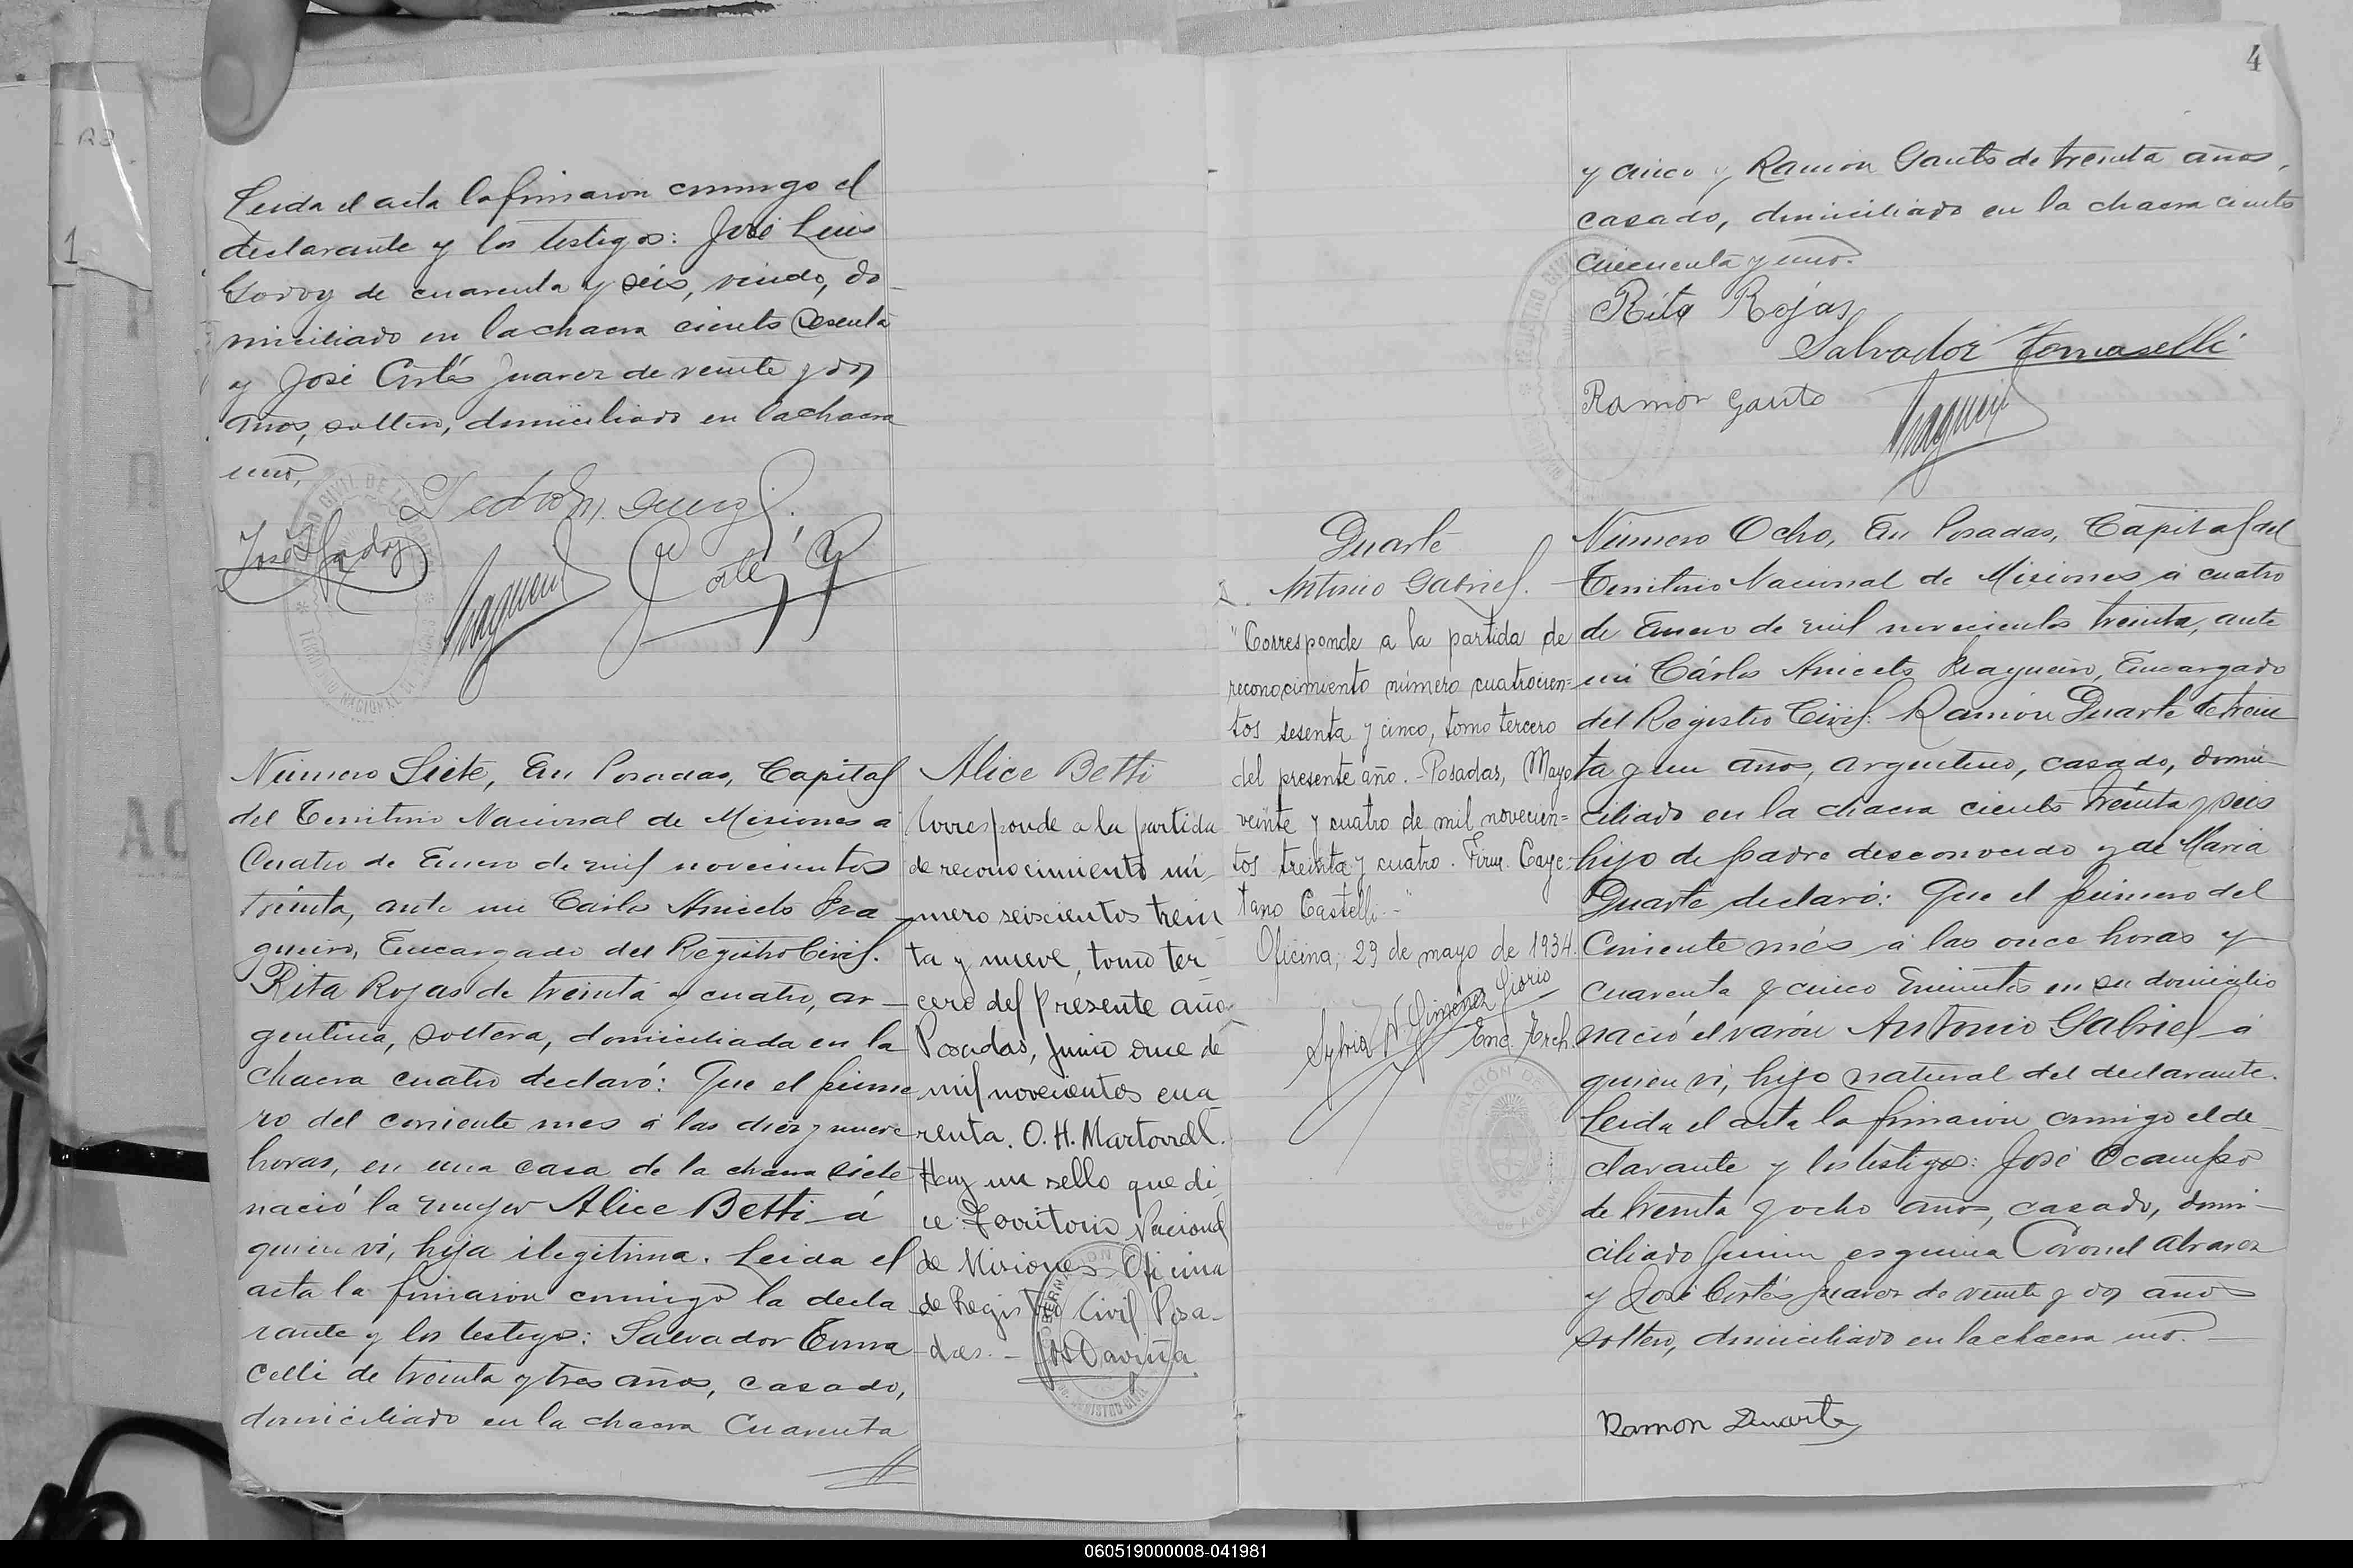 4
1
Leida el acta la firmaron conmigo el
declarante y los testigos: José Luis
Godoy de cuarenta y seis, viudo, do-
miciliado en la chacra ciento sesenta
y José Cortés Juarez de veinte y dos
años, soltero, domiciliado en la chacra
uno.
José L Godoy
Número Siete, En Posadas, Capital
del Territorio Nacional de Misiones a
Cuatro de Enero de mil novecientos
treinta, ante mi Carlos Aniceto Fra
gueiro, Encargado del Registro Civil.
Rita Rojas de treinta y cuatro, ar-
gentina, soltera, domiciliada en la
chacra cuatro declaró: Que el prime
ro del corriente mes á las diez y nueve
horas, en una casa de la chacra siete
nació la mujer Alice Betti á
quien vi, hija ilegitima. Leida el
acta la firmaron conmigo la decla
rante y los testigos: Salvador Toma
celli de treinta y tres años, casado,
domiciliado en la chacra Cuarenta
Alice Betti
Corresponde a la partida
de reconocimiento nú-
mero seiscientos trein
ta y nueve, tomo ter
cero del presente año.
Posadas, junio once de
mil novecientos cua
renta. O. H. Martorell.
Hay un sello que di-
ce Territorio Nacional
de Misiones Oficina
de Registro Civil Posa-
das. -
y cinco y Ramón Gauto de treinta años,
casado, domiciliado en la chacra ciento
cincuenta y uno.
Rita Rojas
Salvador Tomaselli
Ramón Gauto
Duarte
Antonio Gabriel.
"Corresponde a la partida de
reconocimiento número cuatrocien=
tos sesenta y cinco, tomo tercero
del presente año. - Posadas, Mayo
veinte y cuatro de mil novecien=
tos treinta y cuatro. Firm. Caye-
tano Castelli."
Oficina, 29 de mayo de 1934.
Enc. Arch.
Número Ocho, En Posadas, Capital del
Territorio Nacional de Misiones á cuatro
de Enero de mil novecientos treinta, ante
mi Cárlos Aniceto Fragueiro, Encargado
del Registro Civil: Ramón Duarte de trein
ta y un años, argentino, casado, domi-
ciliado en la chacra ciento treinta y seis
hijo de padre desconocido y de Maria
Duarte declaró: Que el primero del
Corriente més á las once horas y
cuarenta y cinco minutos en su domicilio
nació el varón Antonio Gabriel á
quien vi, hijo natural del declarante.
Leida el acta la firmaron conmigo el de-
clarante y los testigos: José Ocampo
de treinta y ocho años, casado, domi-
ciliado Junin esquina Coronel Alvarez
y José Cortés Juarez de veinte y dos años
soltero, domiciliado en la chacra uno. -
Ramon Duarte
060519000008-041981